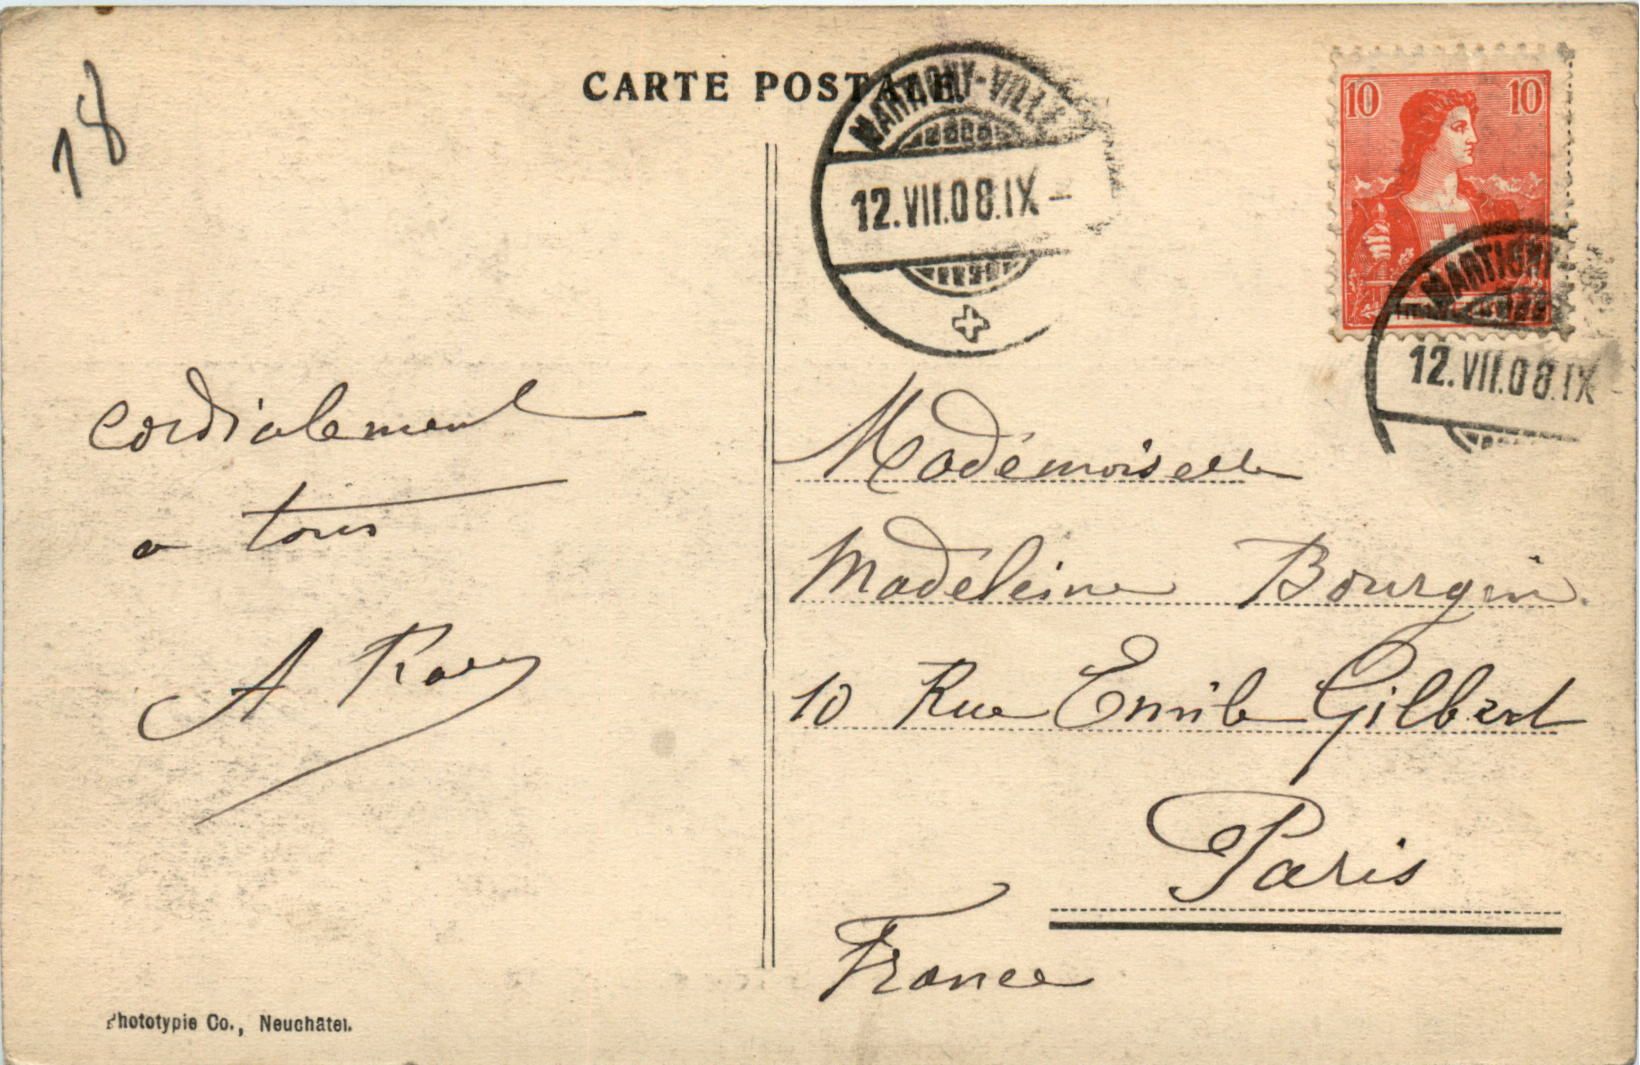 18
CARTE POSTALE.
MARTIGNY-VILLE
12.VII.08.IX-
10 10
MARTIGNY
12.VII.08.IX
cordialement
a tous
A
Mademoiselle
Madeleine Bourgin.
10 Rue Emile Gilbert
Paris
France
Phototypie Co., Neuchâtel.